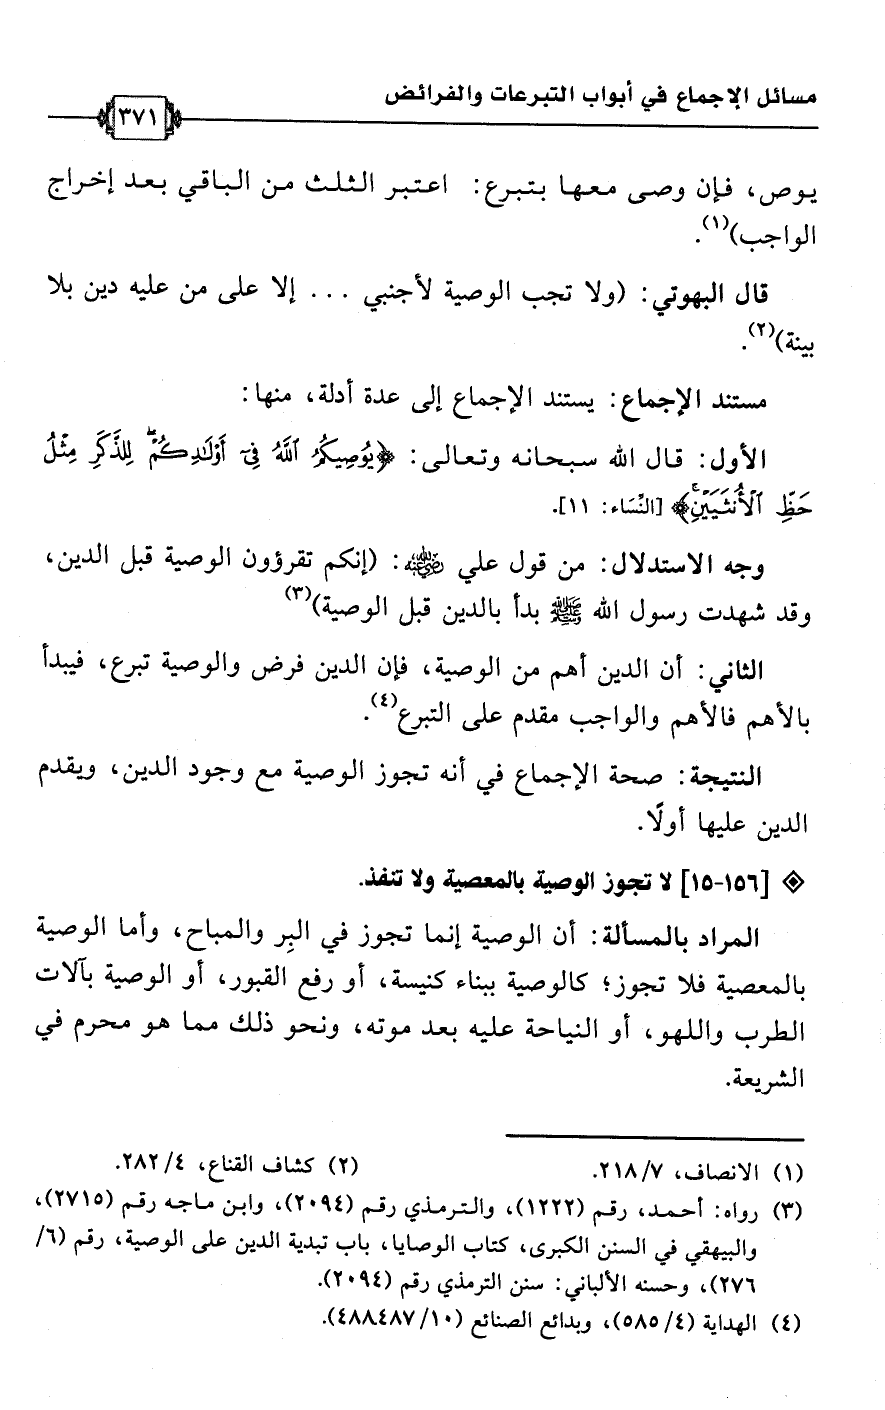 مسائل الإجماع في أبواب التبرعات والفرائض
٣٧١
يوص، فإن وصى معها بتبرع: اعتبر الثلث من الباقي بعد إخراج
الواجب)(١).
قال البهوتي: (ولا تجب الوصية لأجنبي ... إلا على من عليه دين بلا
بينة)(٢).
مستند الإجماع: يستند الإجماع إلى عدة أدلة، منها:
الأول: قال الله سبحانه وتعالى: ﴿يُوصِيكُمُ ٱللَّهُ فِىٓ أَوْلَٰدِكُمْ ۖ لِلذَّكَرِ مِثْلُ
حَظِّ ٱلْأُنثَيَيْنِ ۚ﴾ [النِّسَاء: ١١].
وجه الاستدلال: من قول علي رضي الله عنه: (إنكم تقرؤون الوصية قبل الدين،
وقد شهدت رسول الله ﷺ بدأ بالدين قبل الوصية)(٣)
الثاني: أن الدين أهم من الوصية، فإن الدين فرض والوصية تبرع، فيبدأ
بالأهم فالأهم والواجب مقدم على التبرع(٤).
النتيجة: صحة الإجماع في أنه تجوز الوصية مع وجود الدين، ويقدم
الدين عليها أولًا.
[١٥٦-١٥] لا تجوز الوصية بالمعصية ولا تنفذ.
المراد بالمسألة: أن الوصية إنما تجوز في البِر والمباح، وأما الوصية
بالمعصية فلا تجوز؛ كالوصية ببناء كنيسة، أو رفع القبور، أو الوصية بآلات
الطرب واللهو، أو النياحة عليه بعد موته، ونحو ذلك مما هو محرم في
الشريعة.
(١) الانصاف، ٢١٨/٧. (٢) كشاف القناع، ٢٨٢/٤.
(٣) رواه: أحمد، رقم (١٢٢٢)، والترمذي رقم (٢٠٩٤)، وابن ماجه رقم (٢٧١٥)،
والبيهقي في السنن الكبرى، كتاب الوصايا، باب تبدية الدين على الوصية، رقم (٦/
٢٧٦)، وحسنه الألباني: سنن الترمذي رقم (٢٠٩٤).
(٤) الهداية (٥٨٥/٤)، وبدائع الصنائع (٤٨٨٤٨٧/١٠).